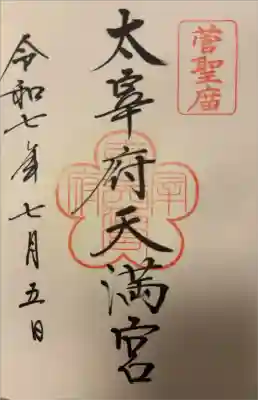 菅聖廟
太宰府天満宮
令和七年七月五日